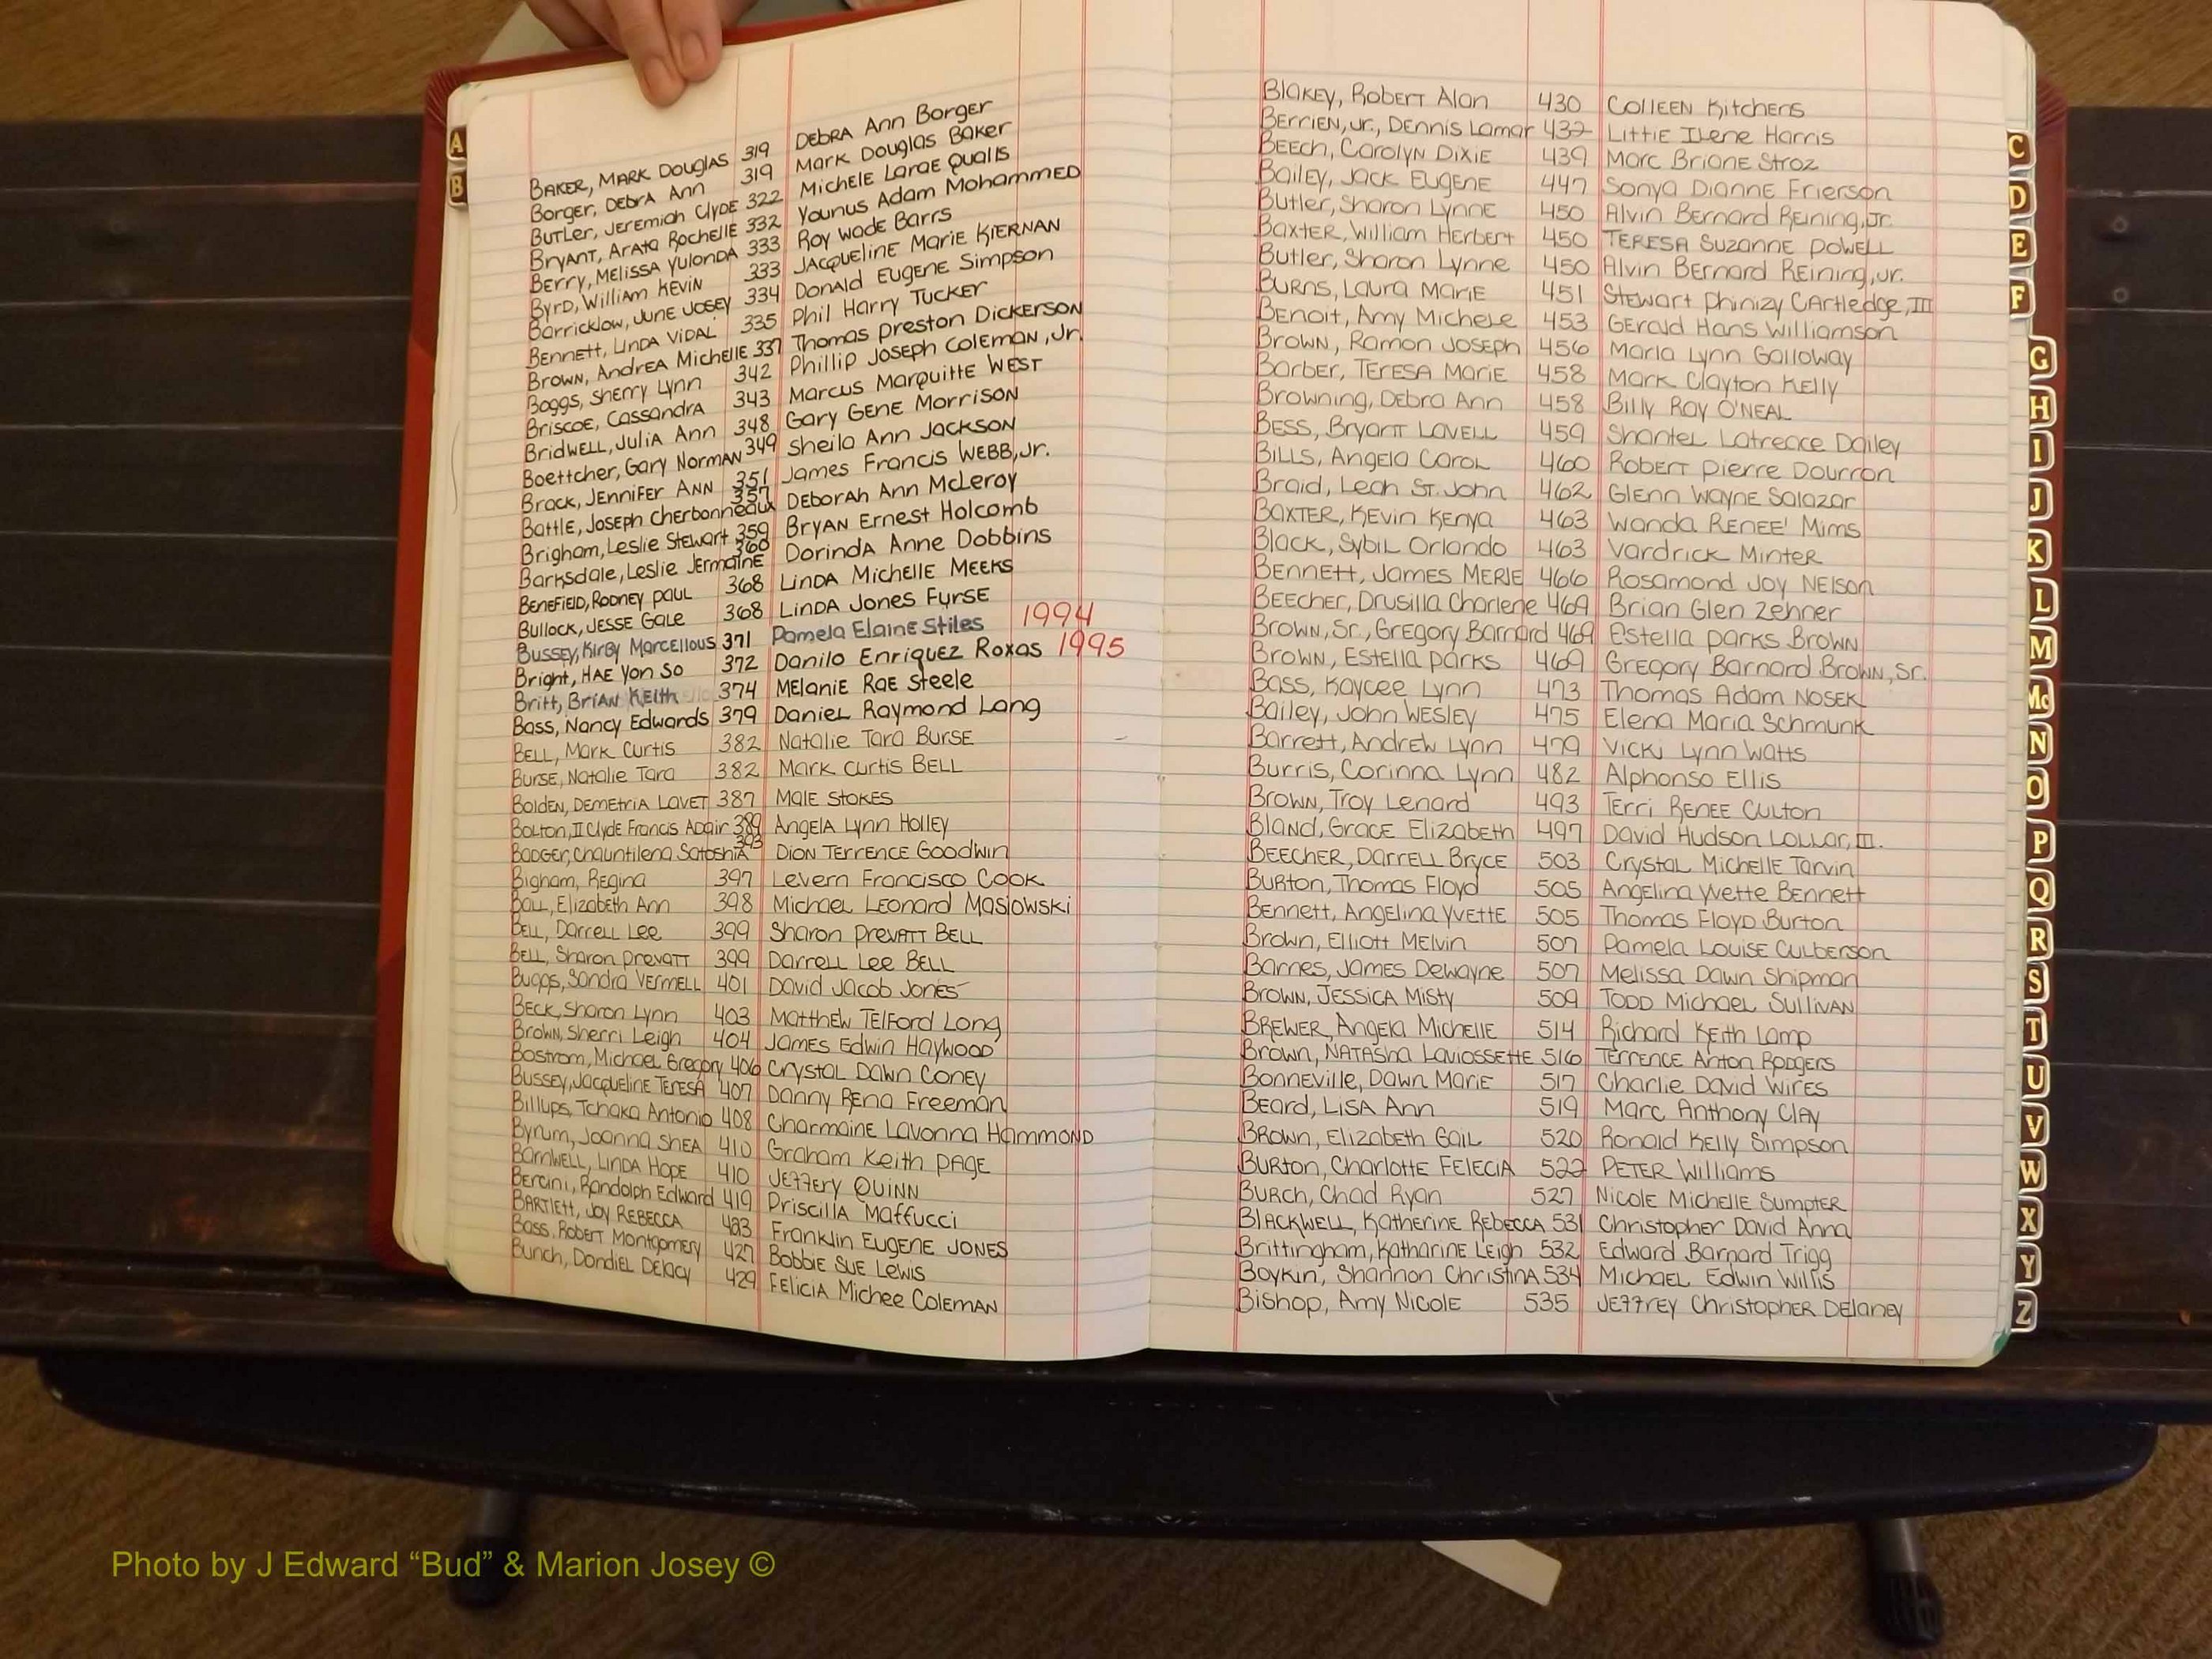 A
B
BAKER, MARK DOUGLAS 319 DEBRA Ann Borger
Borger, DEBRA Ann 319 Mark Douglas Baker
BUTLER, JEREMIAH CLYDE 322 Michele Larae Qualls
BRYANT, ARATA ROCHELLE 332 Younus Adam MohammED
BERRY, MELISSA YULONDA 333 Roy Wade Barrs
BYRD, William KEVIN 333 JACQUELINE MARIE KIERNAN
Barricklow, JUNE JOSEY 334 Donald EUGENE Simpson
BENNETT, LINDA VIDAL 335 Phil Harry TUCKER
BROWN, ANDREA Michelle 337 Thomas Preston DICKERSON
Boggs, Sherry Lynn 342 Phillip Joseph Coleman, Jr.
BRISCOE, CASSANDRA 343 Marcus Marquitte WEST
BRIDWELL, JULIA Ann 348 Gary GENE Morrison
Boettcher, Gary Norman 349 Sheila Ann JACKSON
Brock, JENNIFER ANN 351 James Francis WEBB, Jr.
Battle, Joseph Cherbonneaux 357 DEBORAH Ann McLeroy
Brigham, Leslie Stewart 359 BRYAN Ernest Holcomb
Barksdale, Leslie Jermaine 360 DorindA Anne Dobbins
BENEFIELD, RODNEY PAUL 368 LINDA Michelle MEEKS
Bullock, JESSE GALE 368 LINDA JONES FURSE
BUSSEY, KIRBY MARCELLOUS 371 Pamela Elaine Stiles 1994
Bright, HAE Yon So 372 Danilo Enriquez Roxas 1995
Britt, BRIAN KEITH 374 MELANIE RAE Steele
Bass, Nancy Edwards 379 DanieL Raymond Lang
BELL, Mark Curtis 382 Natalie Tara BURSE
BURSE, Natalie Tara 382 Mark Curtis BELL
BOLDEN, DEMETRIA LAVET 387 MALE STOKES
BOLTON, II Clyde Francis Adair 389 ANGELA Lynn Holley
BODGER, Chauntilena Satoshia 393 DION TERRENCE GOODWIN
Bigham, Regina 397 Levern Francisco Cook
BALL, Elizabeth Ann 398 Michael Leonard Maslowski
BELL, Darrell Lee 399 Sharon PREVATT BELL
BELL, Sharon Prevatt 399 Darrell Lee BELL
Buggs, Sandra VERMELL 401 David Jacob Jones
BECK, Sharon Lynn 403 MATTHEW TELFORD Long
Brown, Sherri Leigh 404 JAMES Edwin HAYWOOD
Bostrom, Michael Gregory 406 CRYSTAL DAWN CONEY
BUSSEY, JACQUELINE TERESA 407 Danny RENA FREEMAN
Billups, Tchaka Antonio 408 Charmaine Lavonna HAMMOND
Byrum, Joanna SHEA 410 Graham Keith PAGE
BARNWELL, LINDA HOPE 410 JEFFERY QUINN
Bercini, Randolph Edward 419 PRISCILLA Maffucci
BARTLETT, JOY REBECCA 423 Franklin EUGENE JONES
Bass, Robert Montgomery 427 Bobbie SUE LEWIS
Bunch, DONDIEL DELACY 429 FELICIA Michee COLEMAN
BLAKEY, Robert Alan 430 COLLEEN Kitchens
BERRIEN, Jr., DENNIS Lamar 432 LITTIE ILENE Harris
BEECH, CAROLYN DIXIE 439 Marc Briane Stroz
Bailey, JACK EUGENE 447 Sonya Dianne Frierson
Butler, Sharon Lynne 450 Alvin Bernard Reining, Jr.
BAXTER, William Herbert 450 TERESA SUZANNE POWELL
Butler, Sharon Lynne 450 Alvin Bernard REINING, Jr.
BURNS, Laura MariE 451 Stewart Phinizy CArtledge, III
BENOIT, Amy Michele 453 GERALD Hans Williamson
BROWN, Ramon Joseph 456 Marla Lynn Galloway
Barber, TERESA MARIE 458 Mark Clayton Kelly
Browning, DEBRA Ann 458 Billy Ray O'NEAL
BESS, BRYANT LAVELL 459 Shantel Latrence Dailey
BILLS, Angela CAROL 460 ROBERT Pierre Dourron
Braid, Leah ST. John 462 GLENN Wayne Salazar
BAXTER, KEVIN KENYA 463 Wanda RENEE' Mims
Black, SYBIL Orlando 463 Vardrick MINTER
BENNETT, JAMES MERLE 466 Rosamond Joy NELSON
BEECHER, Drusilla Charlene 469 Brian Glen Zehner
BROWN, Sr., GREGORY Barnard 469 Estella PARKS Brown
BROWN, ESTELLA PARKS 469 Gregory Barnard Brown, Sr.
Bass, Kaycee Lynn 473 Thomas Adam NOSEK
Bailey, John WESLEY 475 Elena Maria Schmunk
Barrett, Andrew Lynn 479 Vicki Lynn Watts
Burris, Corinna Lynn 482 Alphonso Ellis
BROWN, Troy Lenard 493 Terri RENEE Culton
BLAND, Grace Elizabeth 497 David Hudson LOLLAR, III.
BEECHER, DARRELL BRYCE 503 Crystal Michelle Tarvin
BURTON, Thomas Floyd 505 Angelina Yvette Bennett
Bennett, Angelina YVETTE 505 Thomas Floyd Burton
Brown, Elliott MELVIN 507 Pamela LOUISE CULBERSON
Barnes, James Dewayne 507 Melissa Dawn Shipman
BROWN, JESSICA MISTY 509 TODD Michael SULLIVAN
BREWER, Angela Michelle 514 Richard Keith Lamp
Brown, NATASHA LaviossETTE 516 TERRENCE Anton RODGERS
Bonneville, Dawn MARIE 517 Charlie David WIRES
BEARD, LISA Ann 519 Marc Anthony CLAY
BROWN, Elizabeth GAIL 520 Ronald Kelly Simpson
BURTON, CharlottE FELECIA 522 PETER Williams
BURCH, Chad Ryan 527 NICOLE Michelle SumpTER
BLACKWELL, Katherine REBECCA 531 Christopher David Anna
Brittingham, Katharine Leigh 532 Edward Barnard Trigg
BOYKIN, Shannon Christina 534 Michael Edwin Willis
Bishop, Amy Nicole 535 JEFFREY Christopher DELANEY
C
D
E
F
G
H
I
J
K
L
M
Mc
N
O
P
Q
R
S
T
U
V
W
X
Y
Z
Photo by J Edward “Bud” & Marion Josey ©